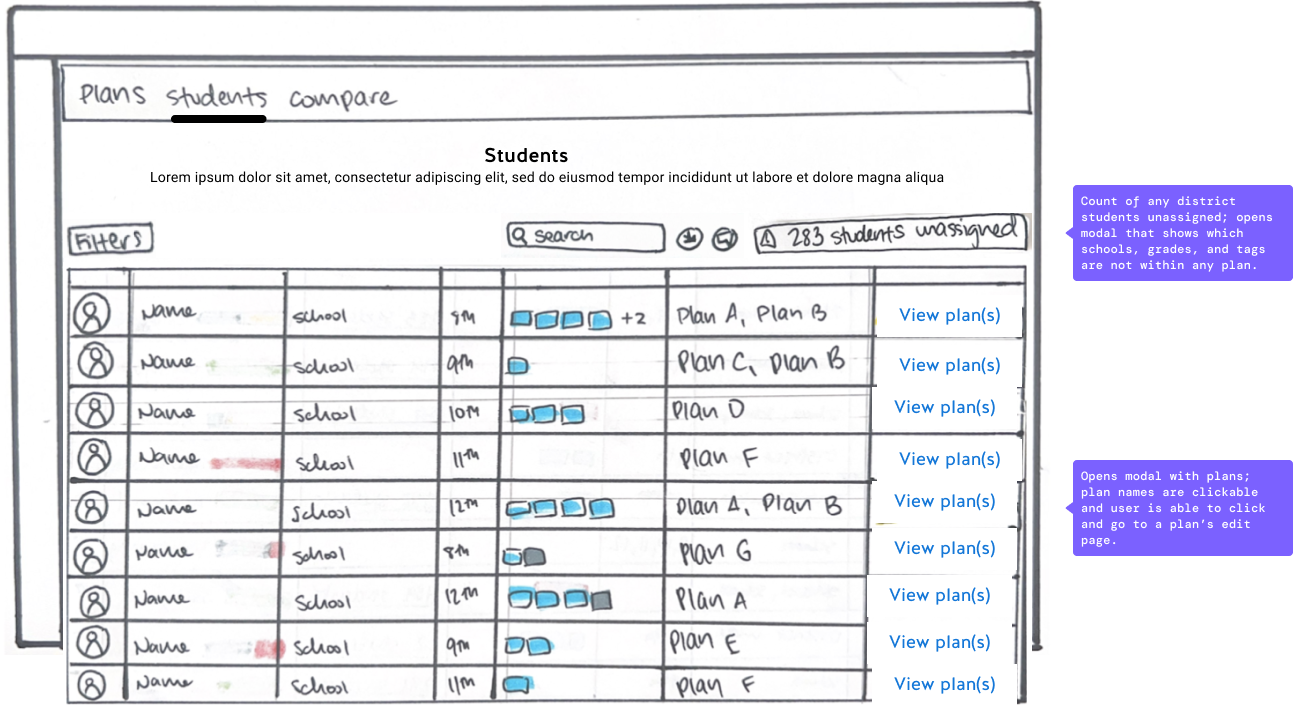 Plans students compare
Students
Lorem ipsum dolor sit amet, consectetur adipiscing elit, sed do eiusmod tempor incididunt ut labore et dolore magna aliqua
Filters search 283 students unassigned
Count of any district
students unassigned; opens
modal that shows which
schools, grades, and tags
are not within any plan.
Name school 8th +2 Plan A, Plan B View plan(s)
Name school 9th Plan C, Plan B View plan(s)
Name school 10th Plan D View plan(s)
Name school 11th Plan F View plan(s)
Opens modal with plans;
plan names are clickable
and user is able to click
and go to a plan's edit
page.
Name school 12th Plan A, Plan B View plan(s)
Name school 8th Plan G View plan(s)
Name school 12th Plan A View plan(s)
Name school 9th Plan E View plan(s)
Name school 11th Plan F View plan(s)